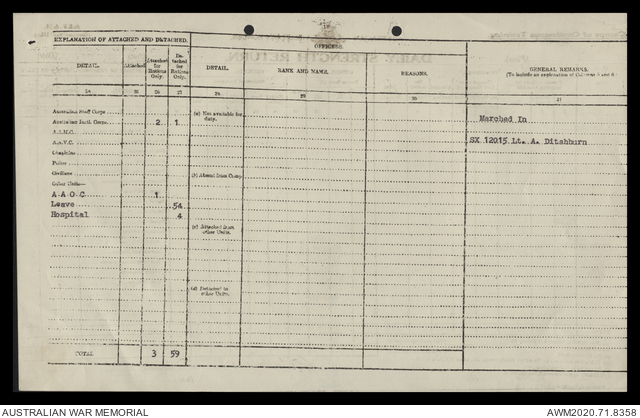 EXPLANATION OF ATTACHED AND DETACHED.
OFFICERS.
DETAIL.
Attached
Attached for Rations Only.
Detached for Rations Only.
DETAIL.
RANK AND NAME.
REASONS.
GENERAL REMARKS.
(To include an explanation of
24
25
26
27
28
29
30
31
Australian Staff Corps
(a) Not available for duty.
Marched In
Australian Instl. Corps 2 1
A.A.M.C.
SX 12015 Lt. A. Ditchburn
A.A.V.C.
Chaplains
(b) Absent from Camp.
Other Units—
A A O C 1
Leave 54
Hospital 4
(c) Attached from other Units.
(d) Detached to other Units.
TOTAL 3 59
AUSTRALIAN WAR MEMORIAL
AWM2020.71.8358